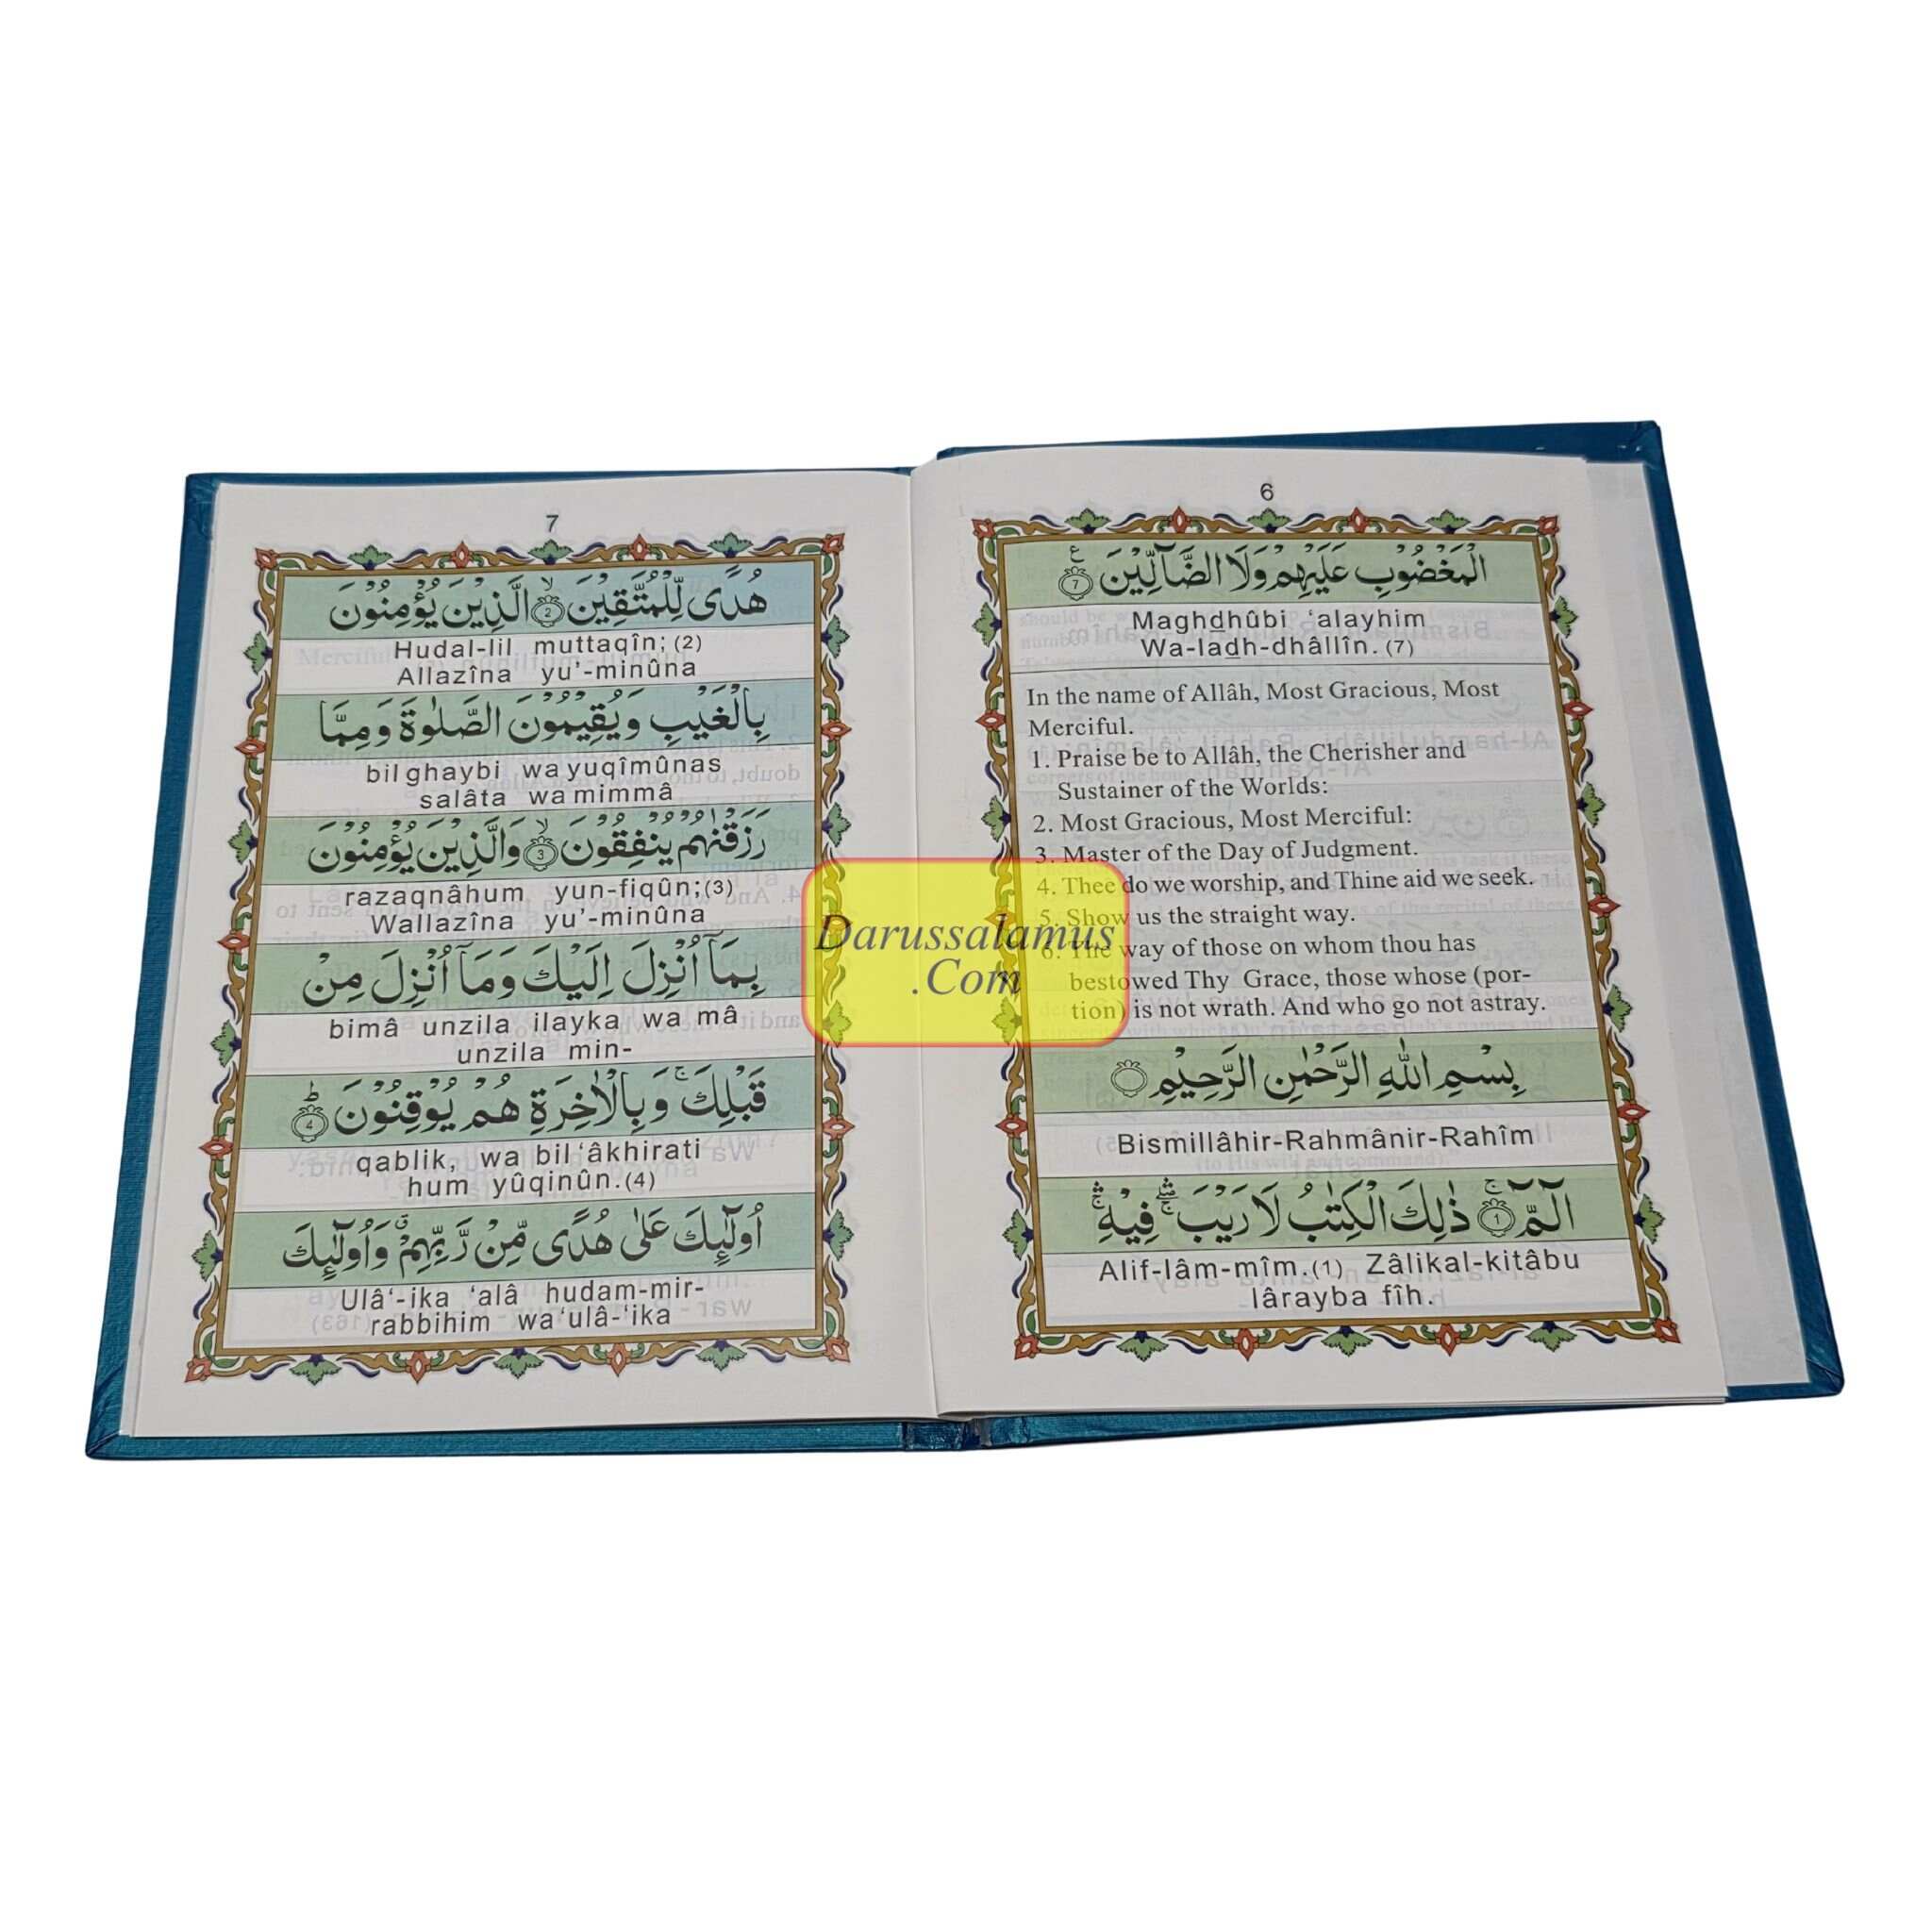 6
الْمَغْضُوْبِ عَلَيْهِمْ وَلَا الضَّآلِّيْنَ ع 7
Maghdhûbi ‘alayhim
Wa-ladh-dhâllîn. (7)
In the name of Allâh, Most Gracious, Most
Merciful.
1. Praise be to Allâh, the Cherisher and
Sustainer of the Worlds:
2. Most Gracious, Most Merciful:
3. Master of the Day of Judgment.
4. Thee do we worship, and Thine aid we seek.
5. Show us the straight way.
6. The way of those on whom thou has
bestowed Thy Grace, those whose (por-
tion) is not wrath. And who go not astray.
بِسْمِ اللهِ الرَّحْمٰنِ الرَّحِيْمِ
Bismillâhir-Rahmânir-Rahîm
الٓمّٓ ۚ 1 ذٰلِكَ الْكِتٰبُ لَا رَيْبَ ۛ فِيْهِ ۛ
Alif-lâm-mîm.(1) Zâlikal-kitâbu
lârayba fîh.
7
هُدًى لِّلْمُتَّقِيْنَ ۙ 2 الَّذِيْنَ يُؤْمِنُوْنَ
Hudal-lil muttaqîn; (2)
Allazîna yu’-minûna
بِالْغَيْبِ وَيُقِيْمُوْنَ الصَّلٰوةَ وَمِمَّا
bil ghaybi wa yuqîmûnas
salâta wa mimmâ
رَزَقْنٰهُمْ يُنْفِقُوْنَ ۙ 3 وَالَّذِيْنَ يُؤْمِنُوْنَ
razaqnâhum yun-fiqûn;(3)
Wallazîna yu’-minûna
بِمَآ اُنْزِلَ اِلَيْكَ وَمَآ اُنْزِلَ مِنْ
bimâ unzila ilayka wa mâ
unzila min-
قَبْلِكَ ۚ وَبِالْاٰخِرَةِ هُمْ يُوْقِنُوْنَ ؕ 4
qablik, wa bil ‘âkhirati
hum yûqinûn.(4)
اُولٰٓئِكَ عَلٰى هُدًى مِّنْ رَّبِّهِمْ ۗ وَاُولٰٓئِكَ
Ulâ‘-ika ‘alâ hudam-mir-
rabbihim wa ‘ulâ-‘ika
Darussalamus
.Com